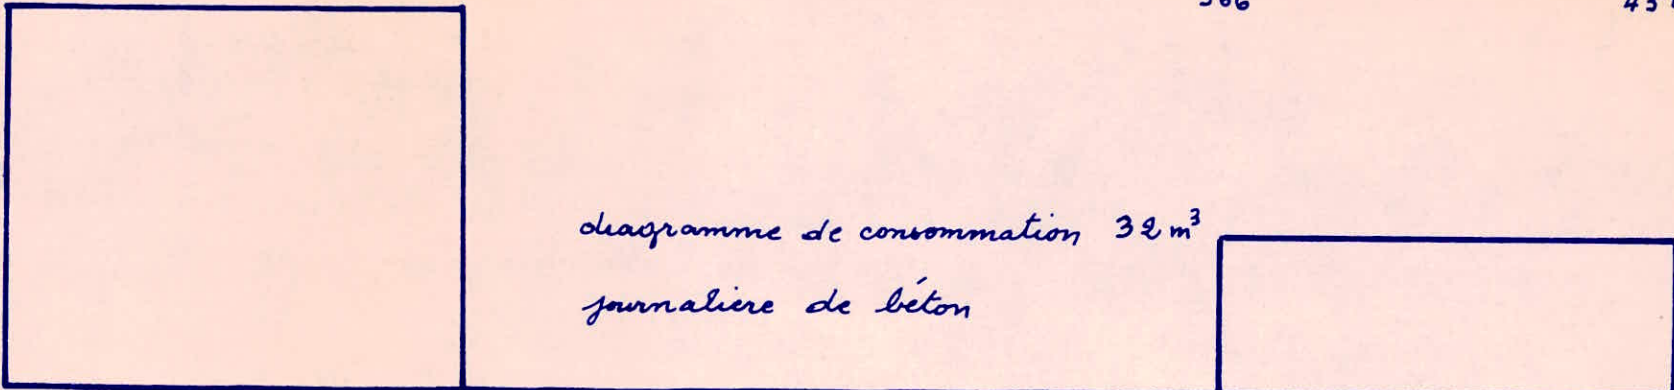 diagramme de consommation 32 m³
journaliere de béton